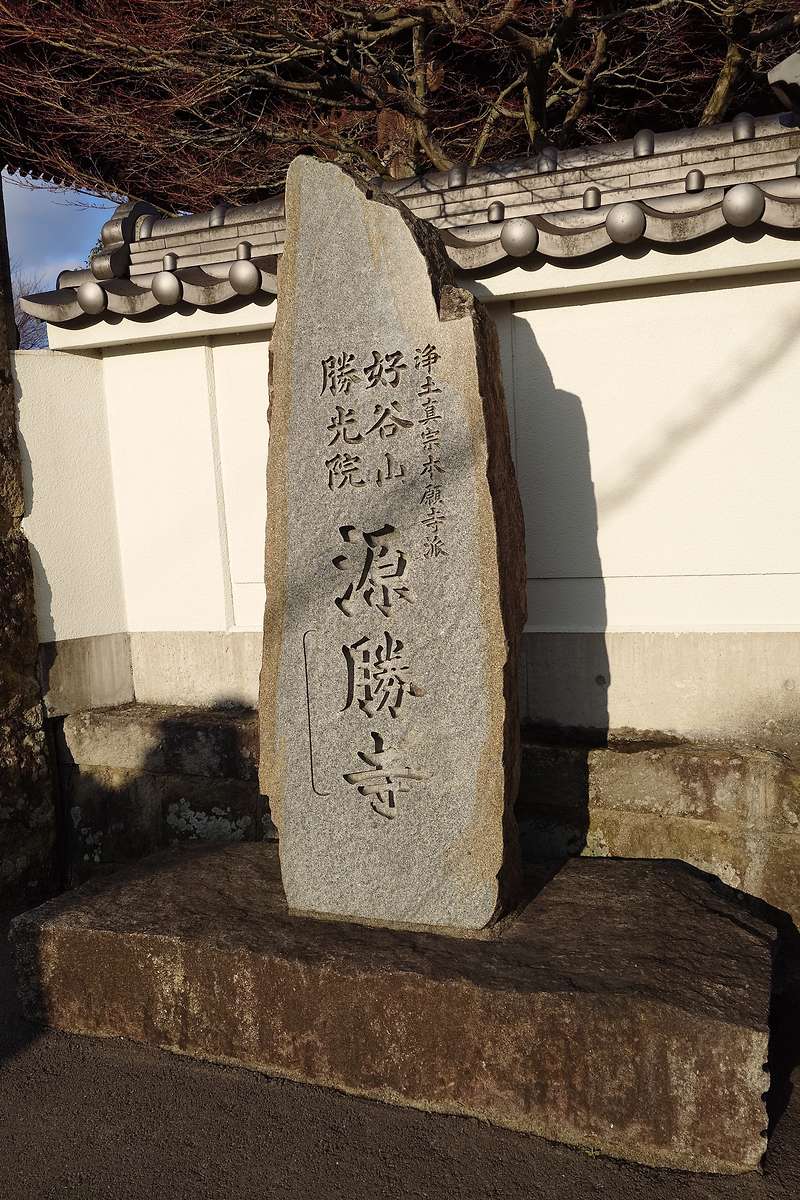 浄土真宗本願寺派
好谷山
勝光院
源勝寺